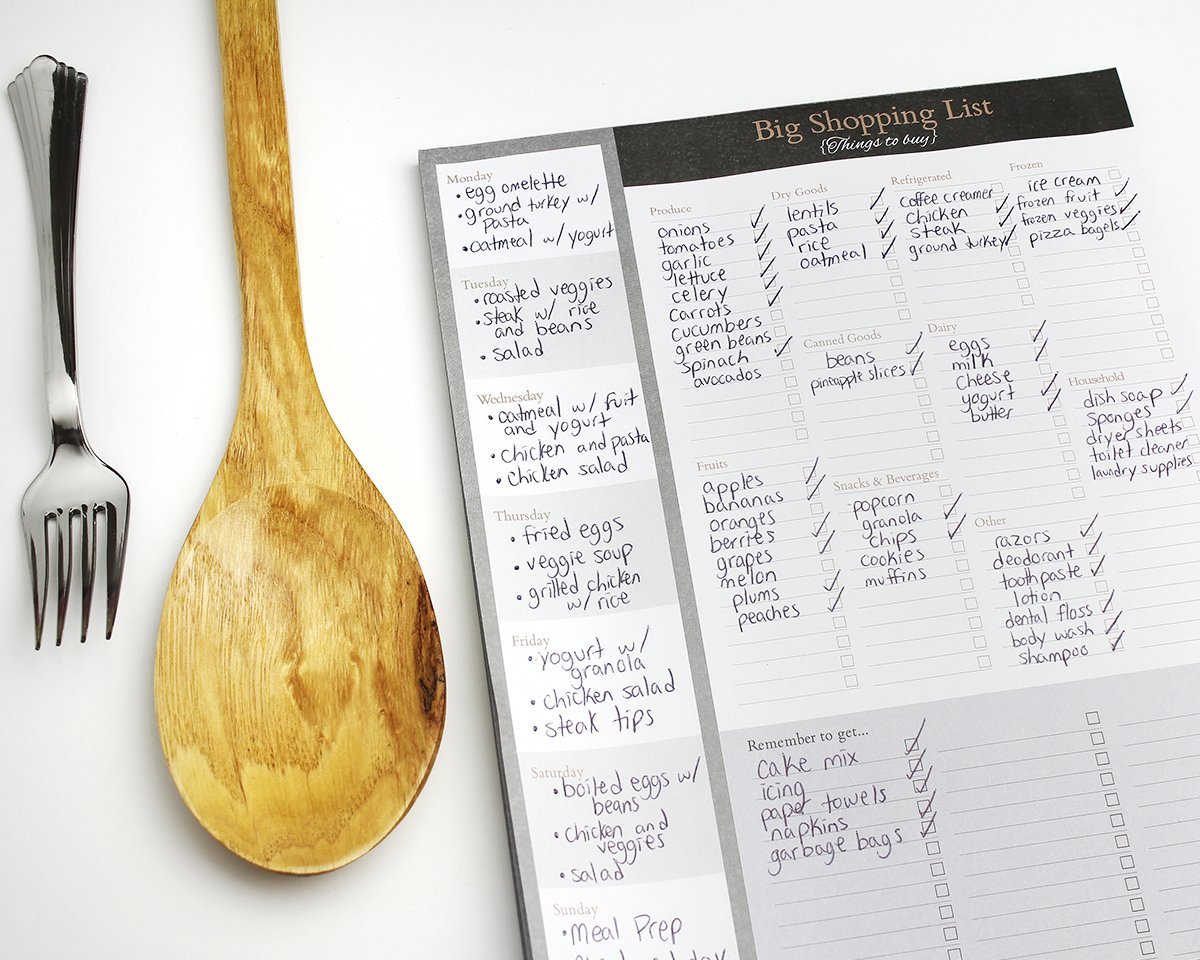 Big Shopping List
{Things to buy}
Monday
• egg omelette
• ground turkey w/
pasta
• oatmeal w/ yogurt
Tuesday
• roasted veggies
• steak w/ rice
and beans
• salad
Wednesday
• oatmeal w/ fruit
and yogurt
• chicken and pasta
• chicken salad
Thursday
• fried eggs
• veggie soup
• grilled chicken
w/ rice
Friday
• yogurt w/
granola
• chicken salad
• steak tips
Saturday
• boiled eggs w/
beans
• chicken and
veggies
• salad
Sunday
• Meal Prep
Produce
onions
tomatoes
garlic
lettuce
celery
carrots
cucumbers
green beans
spinach
avocados
Dry Goods
lentils
pasta
rice
oatmeal
Refrigerated
coffee creamer
chicken
steak
ground turkey
Frozen
ice cream
frozen fruit
frozen veggies
pizza bagels
Canned Goods
beans
pineapple slices
Dairy
eggs
milk
cheese
yogurt
butter
Household
dish soap
Sponges
dryer sheets
toilet cleaner
laundry supplies
Fruits
apples
bananas
oranges
berries
grapes
melon
plums
peaches
Snacks & Beverages
popcorn
granola
chips
cookies
muffins
Other
razors
deodorant
toothpaste
lotion
dental floss
body wash
Shampoo
Remember to get...
cake mix
icing
paper towels
napkins
garbage bags